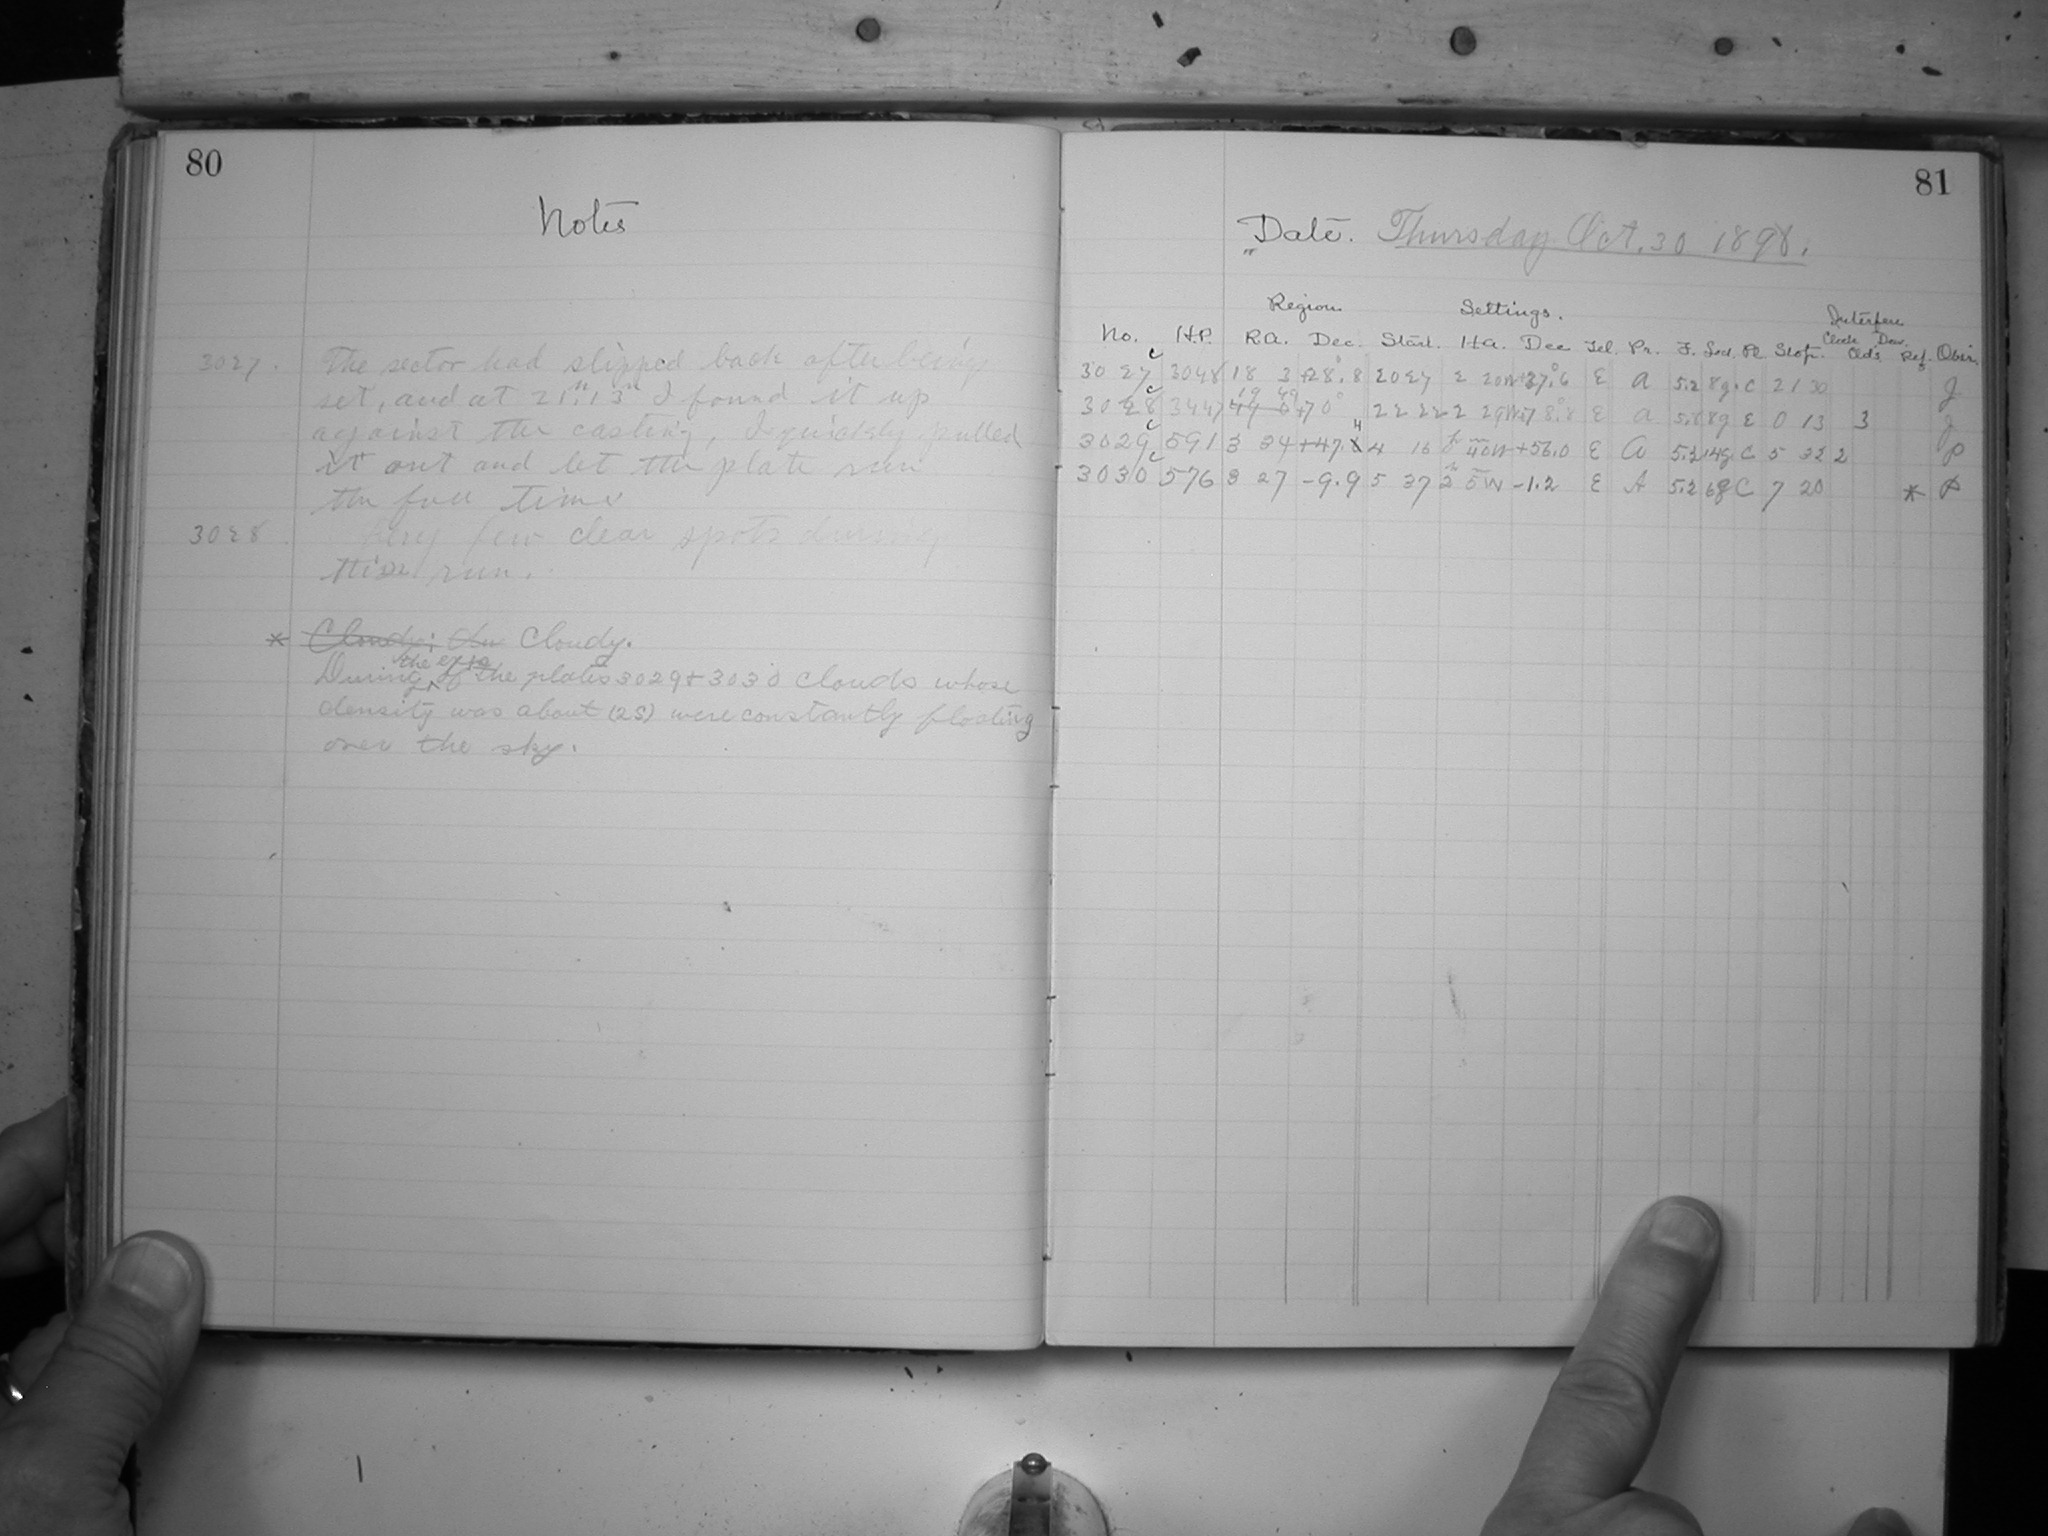 80
Notes
3027. The sector had slipped back after being
set, and at 21h 13m I found it up
against the casting, I quickly pulled
it out and let the plate run
the full time
3028. Very few clear spots during
this run.
* Cloudy; Cloudy.
During the expo of the plates 3029 + 3030 clouds whose
density was about (25) were constantly floating
over the sky.
81
Date. Thursday Oct. 30 1898.
Region. Settings. Interfer.
No. H.P. R.A. Dec. Start. H.A. Dec Tel. Pr. F. Sec. Pl. Stop. Clock Clds. Dew. Ref. Obsr.
3027 c 3048 18 3 +28.8 20 27 2 20W +37.6 E A 5.2 8g. C 21 30 J
3028 c 3447 19 49 +70° 22 22 2 29W +78.8 E A 5.8 8g E 0 13 3 J
3029 c 591 3 34 +47.4 4 16 40W +56.0 E A 5.2 14g. C 5 22 2 P
3030 c 576 3 27 -9.9 5 37 2h 5mW -1.2 E A 5.2 6g C 7 20 * P